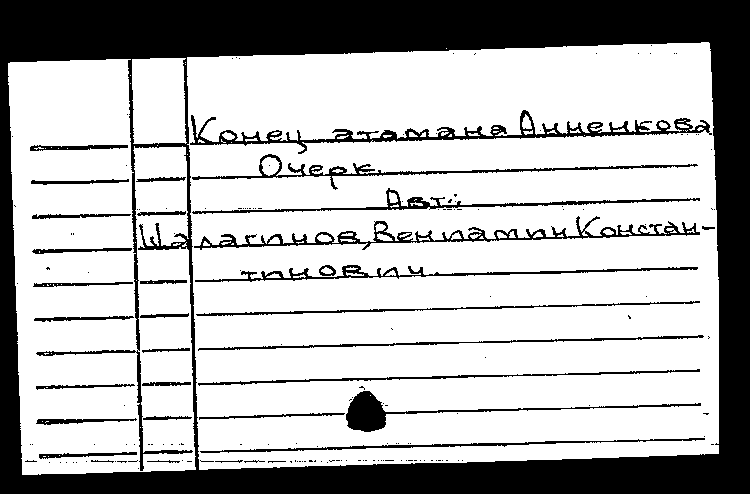 Конец атамана Анненкова
Очерк.
Авт.:
Шалагинов, Вениамин Констан-
тинович.